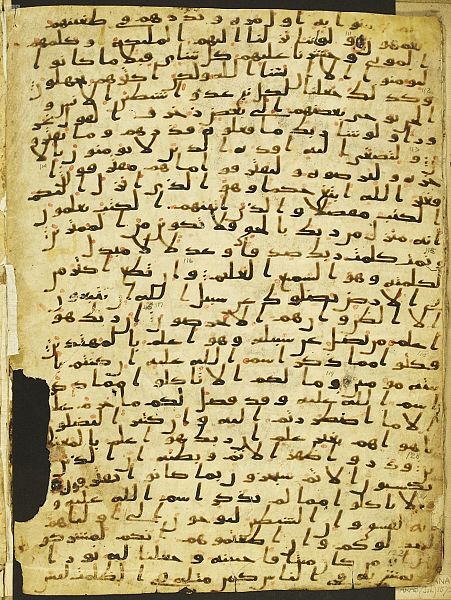 يومنوا به اول مره ونذرهم في طغينهم
يعمهون ولو اننا نزلنا اليهم الملئكه وكلمهم
الموتى وحشرنا عليهم كل شي قبلا ما كانوا
ليومنوا الا ان يشا الله ولكن اكثرهم يجهلون
وكذلك جعلنا لكل نبي عدوا شيطين الانس و
الجن يوحي بعضهم الى بعض زخرف القول غر
ورا ولو شا ربك ما فعلوه فذرهم وما يفتر
ون ولتصغى اليه افده الذين لا يومنون بالا
خره وليرضوه وليقترفوا ما هم مقترفون ا
فغير الله ابتغي حكما وهو الذي انزل اليكم
الكتب مفصلا والذين اتينهم الكتب يعلمون
انه منزل من ربك بالحق فلا تكونن من الممترين
وتمت كلمت ربك صدقا وعدلا لا مبدل
لكلمته وهو السميع العليم وان تطع اكثر من
في الارض يضلوك عن سبيل الله ان يتبعون
الا الظن وان هم الا يخرصون ان ربك هو
اعلم من يضل عن سبيله وهو اعلم بالمهتدين
فكلوا مما ذكر اسم الله عليه ان كنتم با
يته مومنين وما لكم الا تاكلوا مما ذكر
اسم الله عليه وقد فصل لكم ما حرم عليكم
الا ما اضطررتم اليه وان كثيرا ليضلون
باهوائهم بغير علم ان ربك هو اعلم بالمعتد
ين وذروا ظهر الاثم وبطنه ان الذين
يكسبون الاثم سيجزون بما كانوا يقترفون
ولا تاكلوا مما لم يذكر اسم الله عليه و
انه لفسق وان الشيطين ليوحون الى اوليائهم
ليجدلوكم وان اطعتموهم انكم لمشركو
ن او من كان ميتا فاحيينه وجعلنا له نورا
يمشي به في الناس كمن مثله في الظلمت ليس